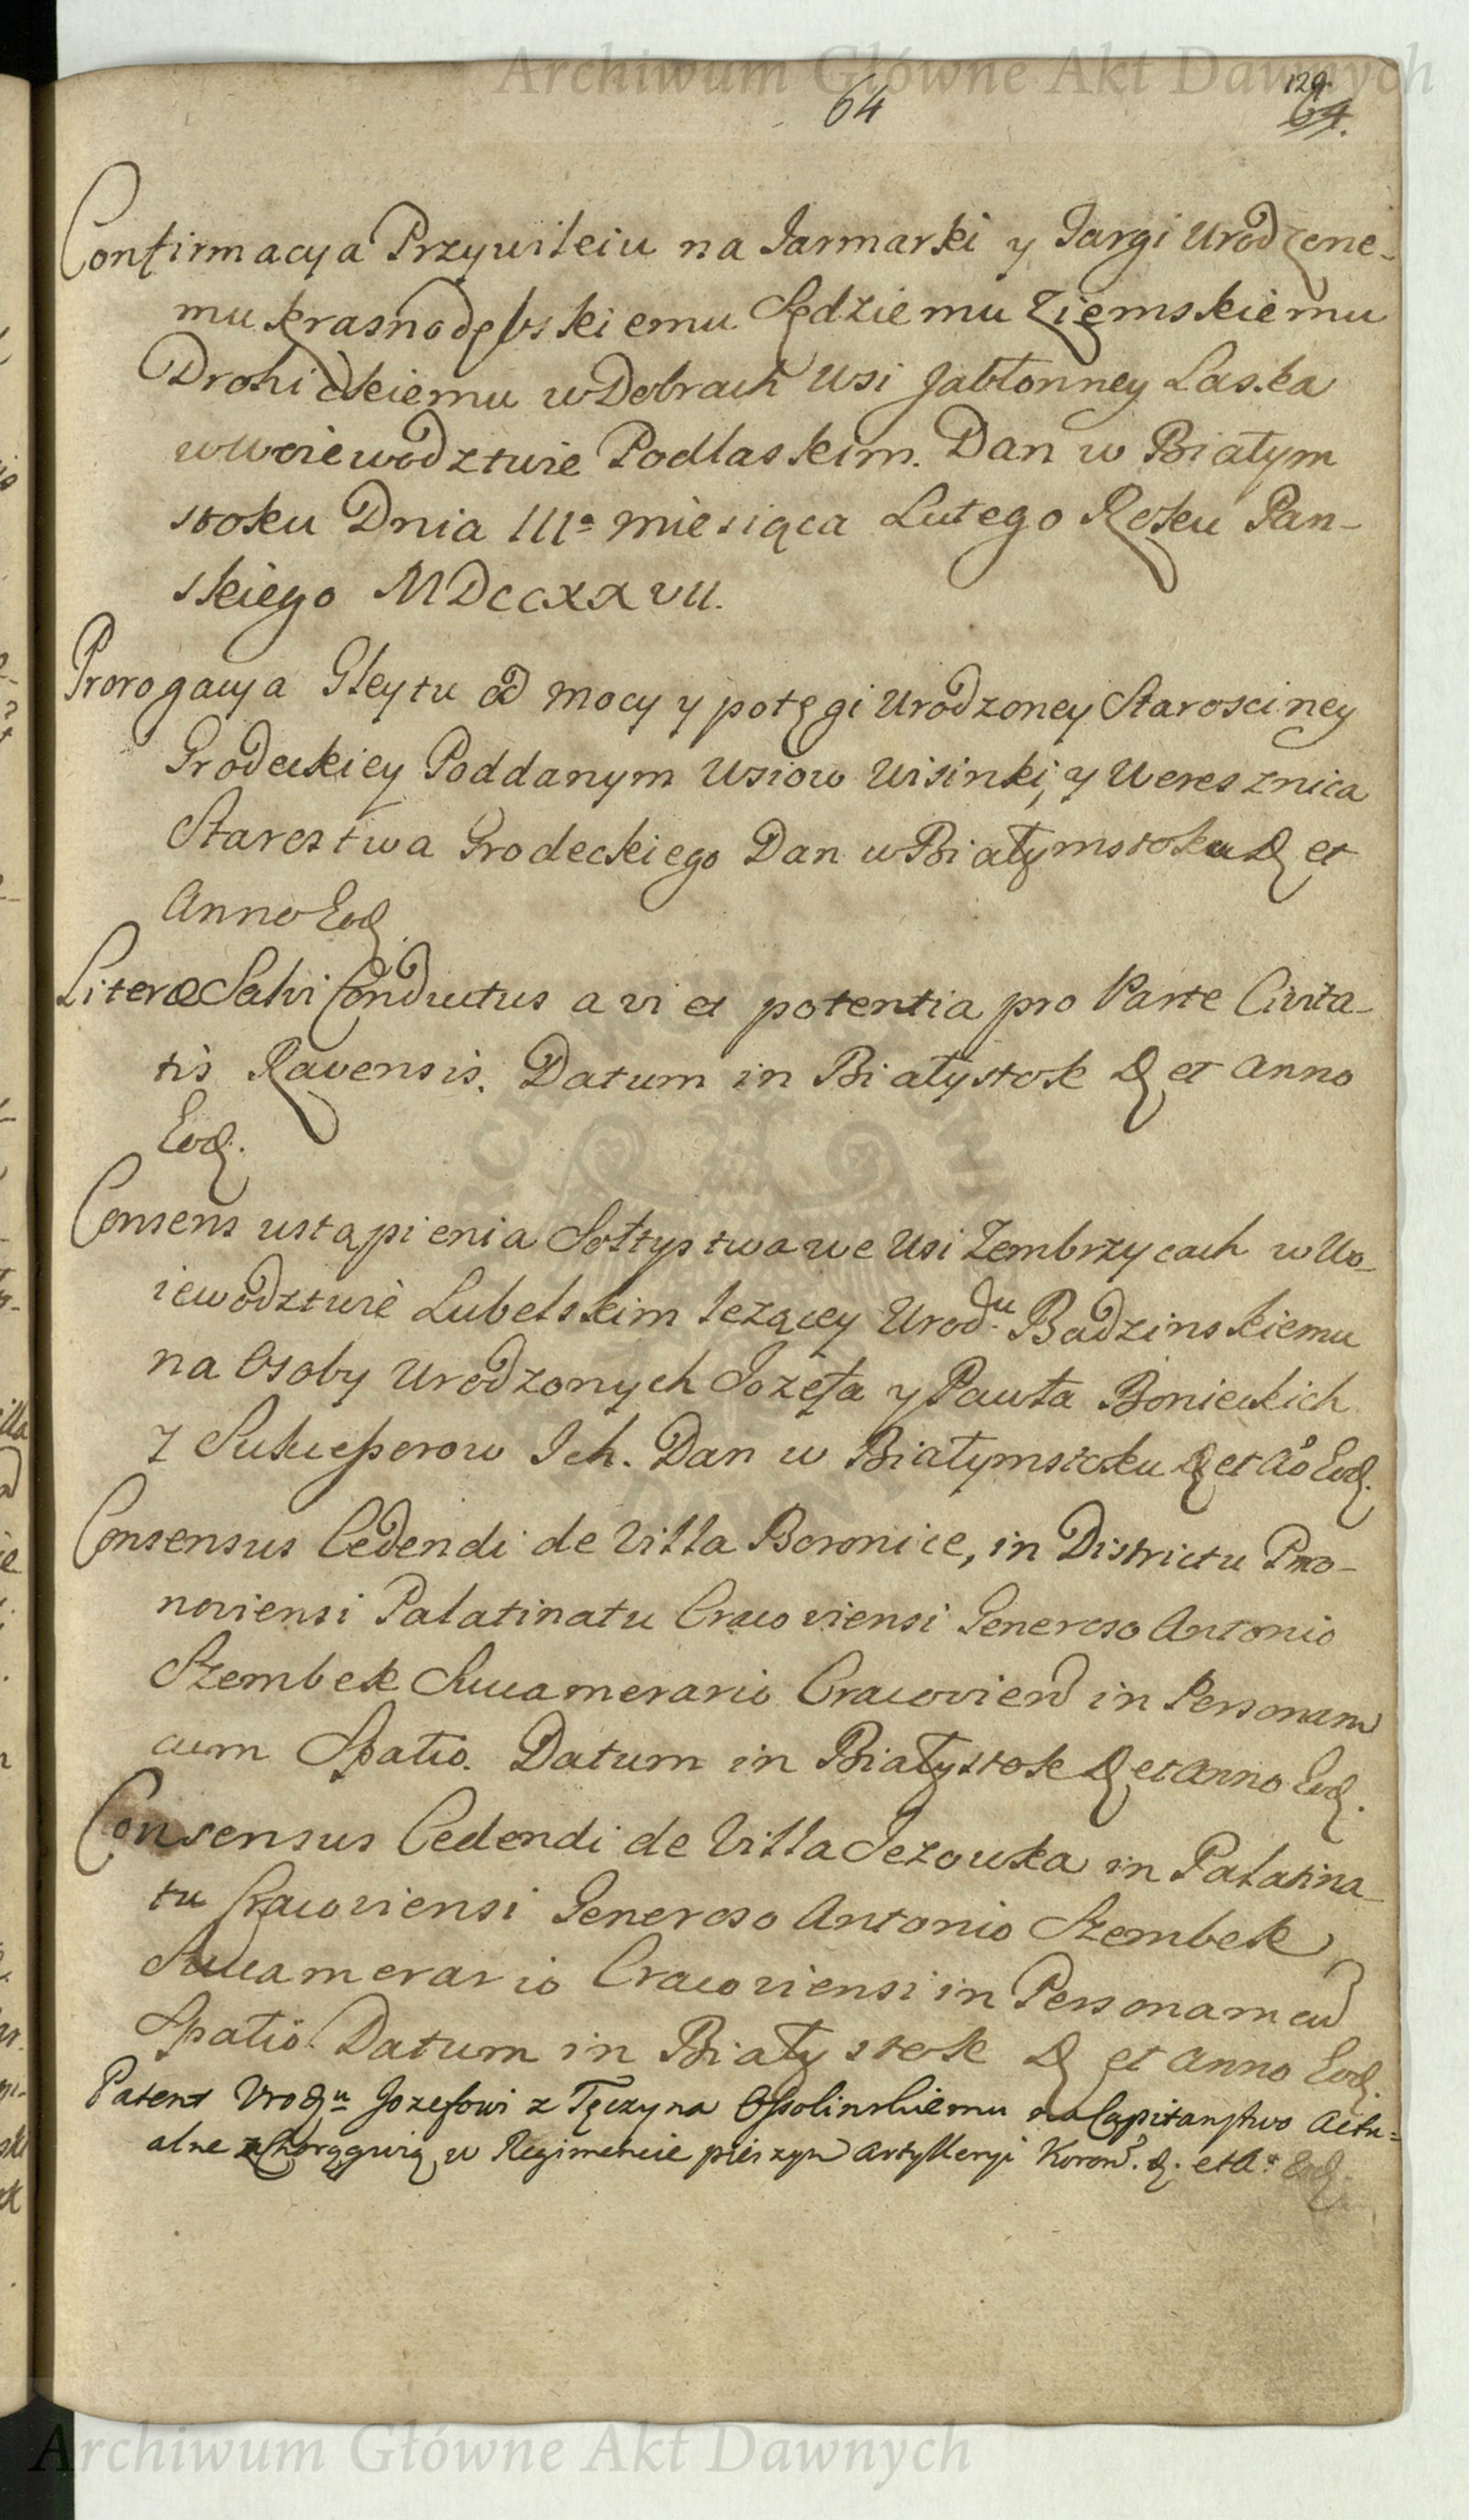 Archiwum Główne Akt Dawnych
64
129.
64.
Confirmacya Przywileiu na Jarmarki y Targi Urodzone-
mu Krasnodębskiemu Sędziemu Ziemskiemu
Drohickiemu w Dobrach Wsi Jabłonney Laska
w Woiewodztwie Podlaskim. Dan w Białym
stoku Dnia IIIo miesiąca Lutego Roku Pan-
skiego MDCCXXVII.
Prorogacya Gleytu od mocy y potęgi Urodzoney Starosciney
Grodeckiey Poddanym Wsiow Wisinki, y Weresznica
Starostwa Grodeckiego Dan w Białymstoku D et
Anno Eod.
Literæ Salvi Conductus a vi et potentia pro Parte Civita-
tis Ravensis. Datum in Białystok D et Anno
Eod.
Consens ustąpienia Sołtystwa we Wsi Zembrzycach w Wo-
iewodztwie Lubelskim leżącey Urod.u Badzinskiemu
na Osoby Urodzonych Jozefa y Pawła Bonieckich
z Sukcessorow Ich. Dan w Białymstoku D et Ao Eod.
Consensus Cedendi de Villa Boronice, in Districtu Pro-
noviensi Palatinatu Cracoviensi Generoso Antonio
Szembek Succamerario Cracovien in Personam
cum Spatio. Datum in Białystok D et Anno Eod.
Consensus Cedendi de Villa Jezowka in Palatina-
tu Cracoviensi Generoso Antonio Szembek
Succamerario Cracoviensi in Personam cu
Spatio. Datum in Białystok D et Anno Eod.
Patent Urod.u Jozefowi z Tęczyna Ossolinskiemu na Capitanstwo Actu=
alne z Chorągwią w Regimencie pieszym Artylleryi Koron. D. et Ao Eod.
Archiwum Główne Akt Dawnych